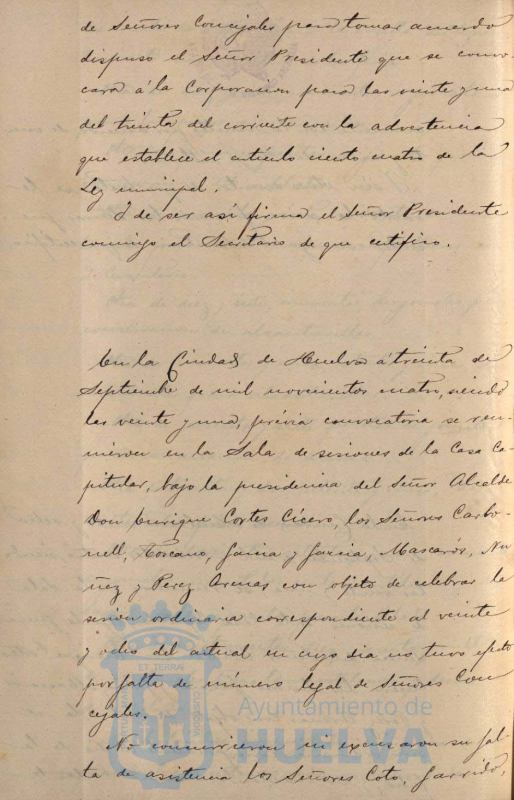 de Señores Concejales para tomar acuerdo
dispuso el Señor Presidente que se convo-
cara á la Corporacion para las veinte y una
del treinta del corriente con la advertencia
que establece el artículo ciento cuatro de la
Ley municipal.
Y de ser así firma el Señor Presidente
conmigo el Secretario de que certifico.
En la Ciudad de Huelva á treinta de
Septiembre de mil novecientos cuatro, siendo
las veinte y una, prévia convocatoria se reu-
nieron en la Sala de sesiones de la Casa Ca-
pitular, bajo la presidencia del Señor Alcalde
Don Enrique Cortes Cícero, los Señores Carbo-
nell, Toscano, Garcia y Garcia, Mascarós, Nu-
ñez y Perez Arenas con objeto de celebrar la
sesion ordinaria correspondiente al veinte
y ocho del actual en cuyo dia no tuvo efecto
por falta de número legal de Señores Con
cejales.
No concurrieron ni excusaron su fal-
ta de asistencia los Señores Coto, Garrido,
ET TERRA
Ayuntamiento de
HUELVA